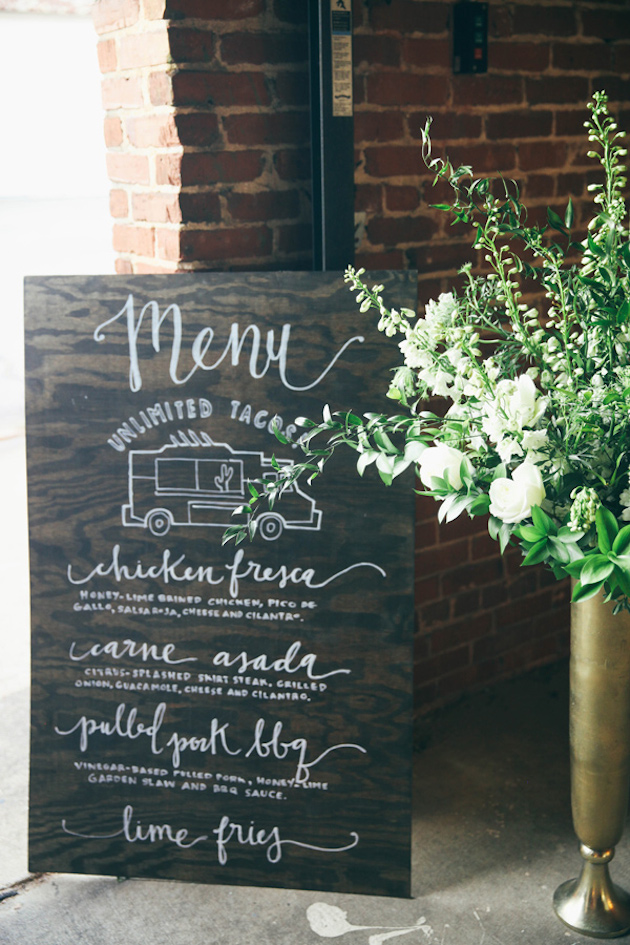 Menu
UNLIMITED TACOS
chicken fresca
HONEY-LIME BRINED CHICKEN, PICO DE
GALLO, SALSA ROJA, CHEESE AND CILANTRO.
carne asada
CITRUS-SPLASHED SKIRT STEAK, GRILLED
ONION, GUACAMOLE, CHEESE AND CILANTRO.
pulled pork bbq
VINEGAR-BASED PULLED PORK, HONEY-LIME
GARDEN SLAW AND BBQ SAUCE.
lime fries